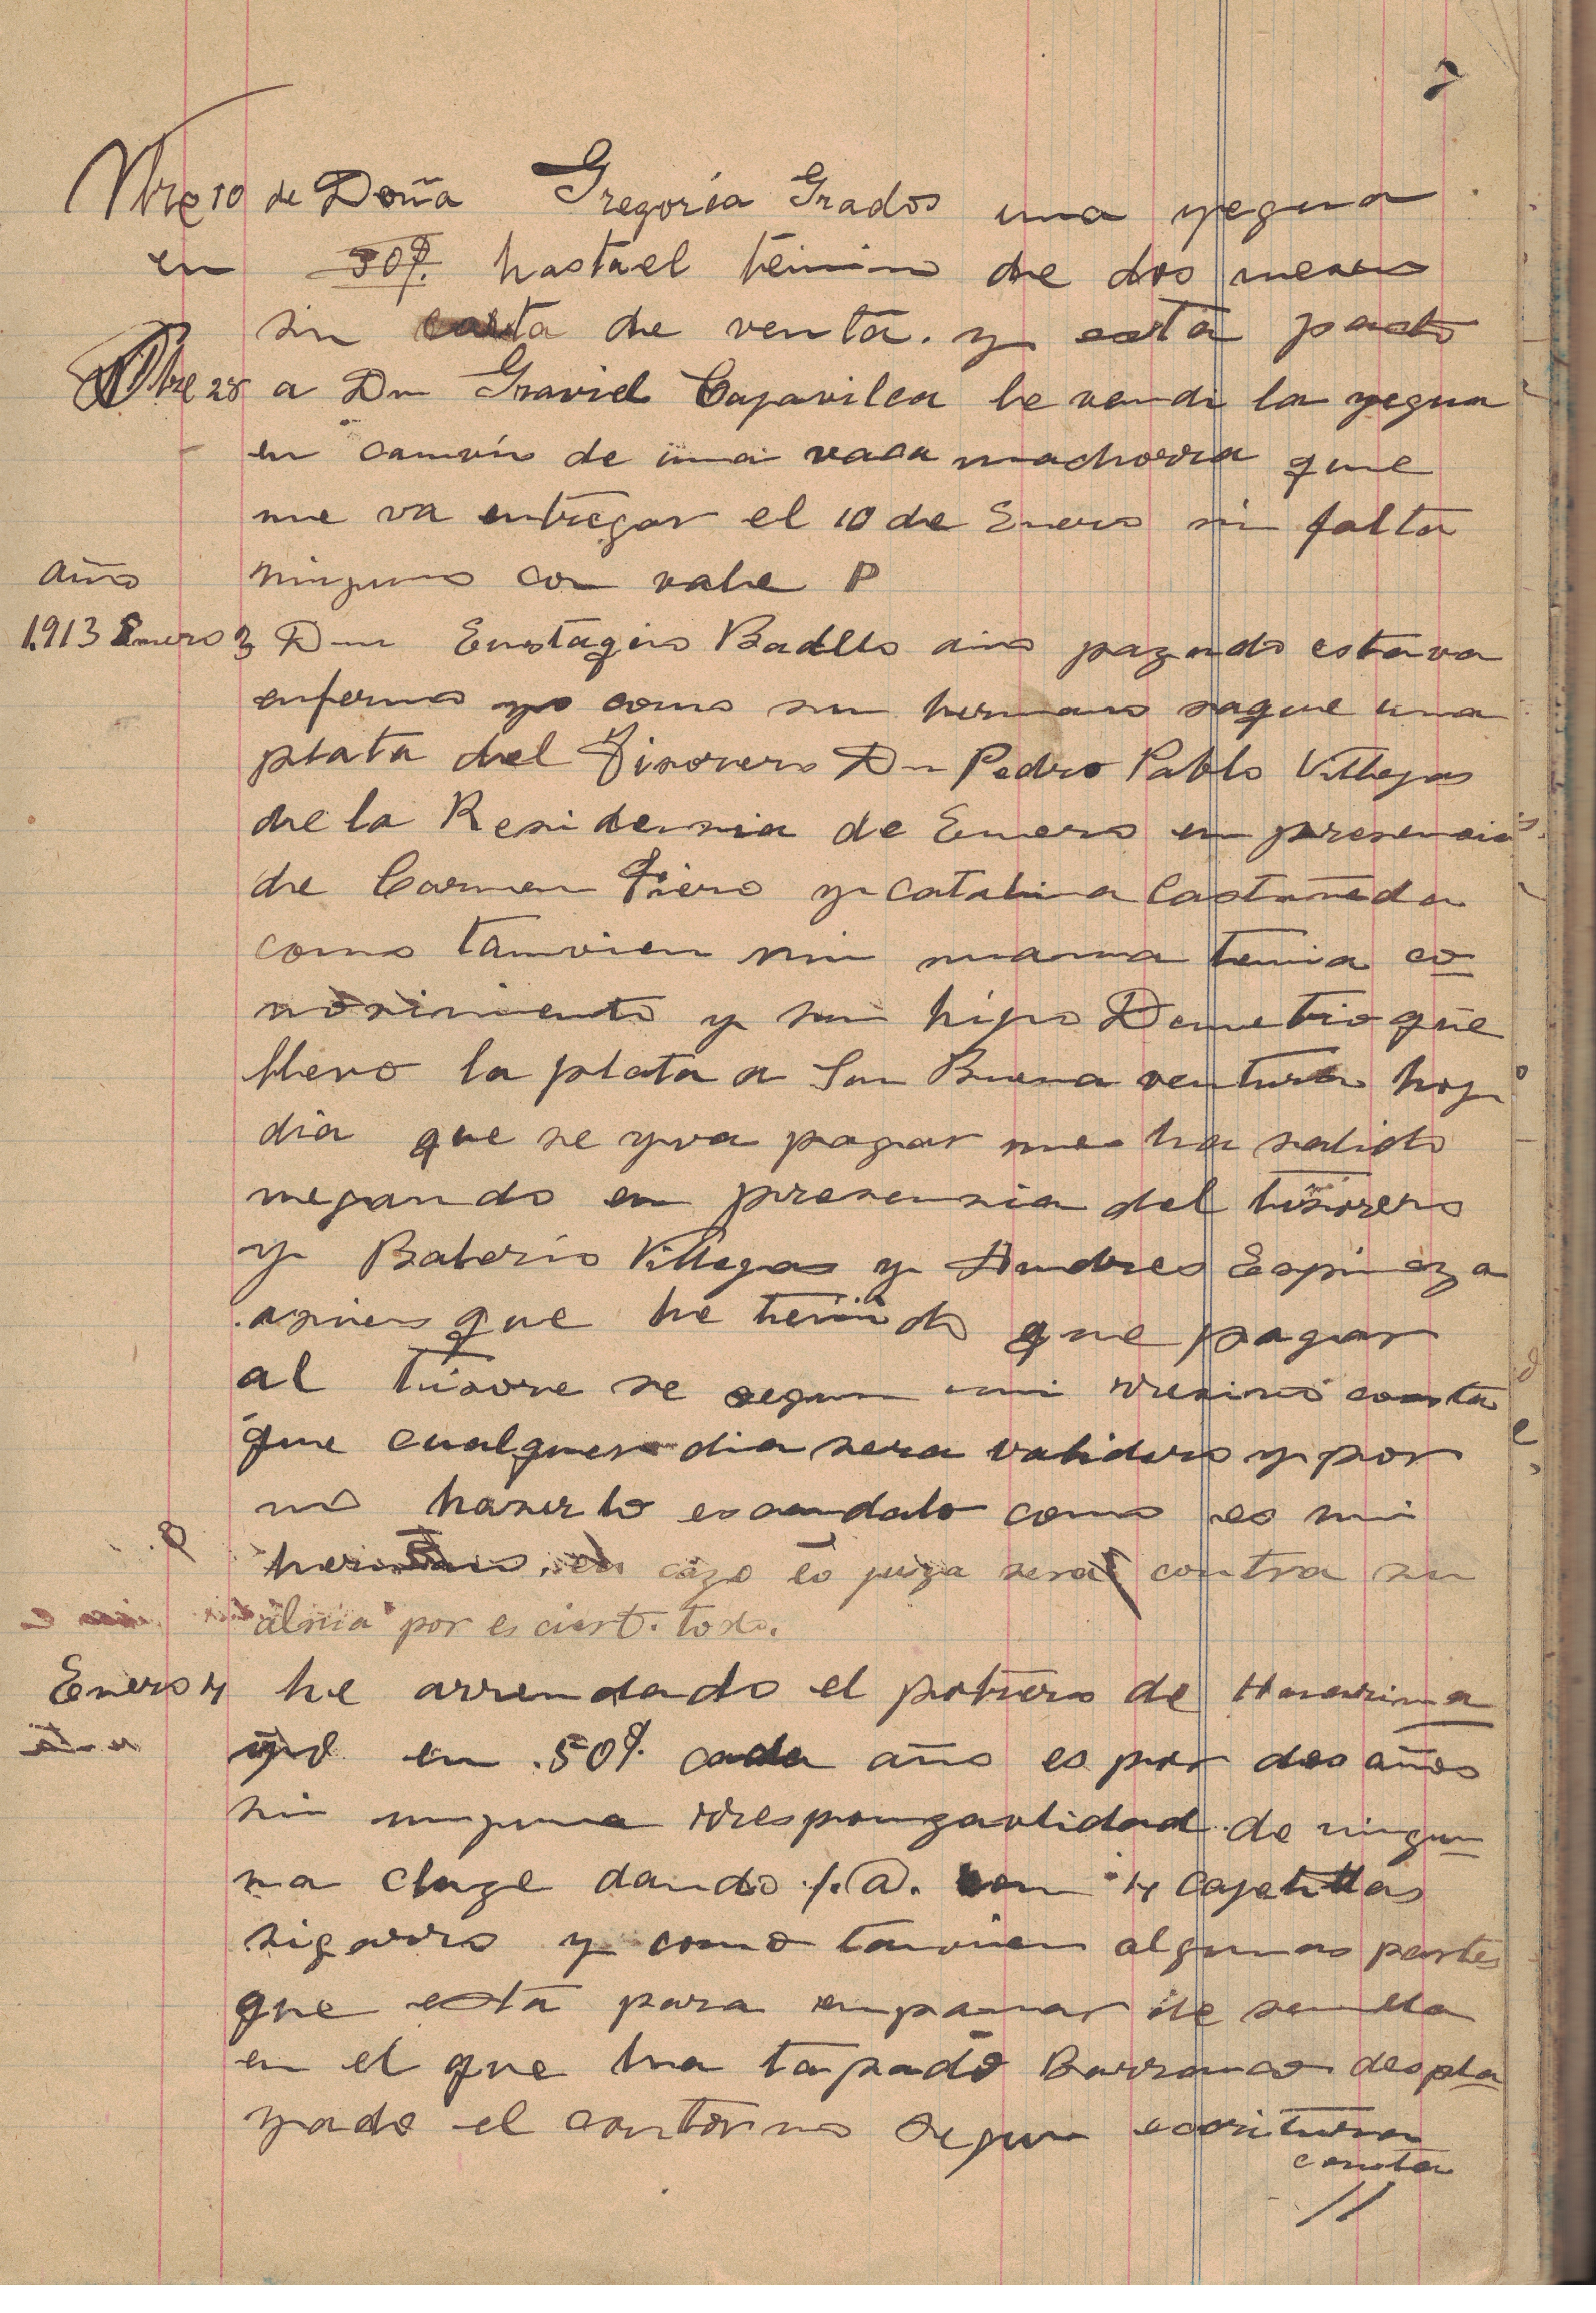 Nbre 10 de Doña Gregoria Grados una yegua
en 50%. hasta el teimino de dos meses
sin carta de venta. y esta pacto
Nbre 28 a Dn Graviel Cajavilca le vendi la yegua
en camvio de una vaca machorra que
me va entregar el 10 de Enero sin falta
año ninguno con vale P
1.913 Enero 3 Dn Eustaqio Badllo año pazando estava
enfermo yo como su hermano saque una
plata del Tisorero Dn Pedro Pablo Villegas
de la Residensia de Enero en presencia
de Carmen Piero y Catalina Castañeda
como tamvien mi mama tenia co
nosimiento y su hijo Demetrio que
llevo la plata a San Buena ventura hoy
dia que se yva pagar me ha salido
negando en presensia del tisorero
y Balerio Villegas y Andres Espinoza
asies que he tenido que pagar
al tisore se segun mi rresivo consta
que cualquer dia sera validero y por
no haserlo escandalo como es mi
hermano, en cazo eo juiza sera contra su
alma por es ciert. todo.
Enero 4 he arrendado el potrero de Huarima
yo en .50%. cada año es por dos años
sin ninguna rresponzavlidad de ningu
na claze dando f.@. con 4 cajetillas
sigarro y como tamvien algunas partes
que esta para enpamar de semlla
en el que ha tapado Barranco despla
yado el contorno segun escritura
consta